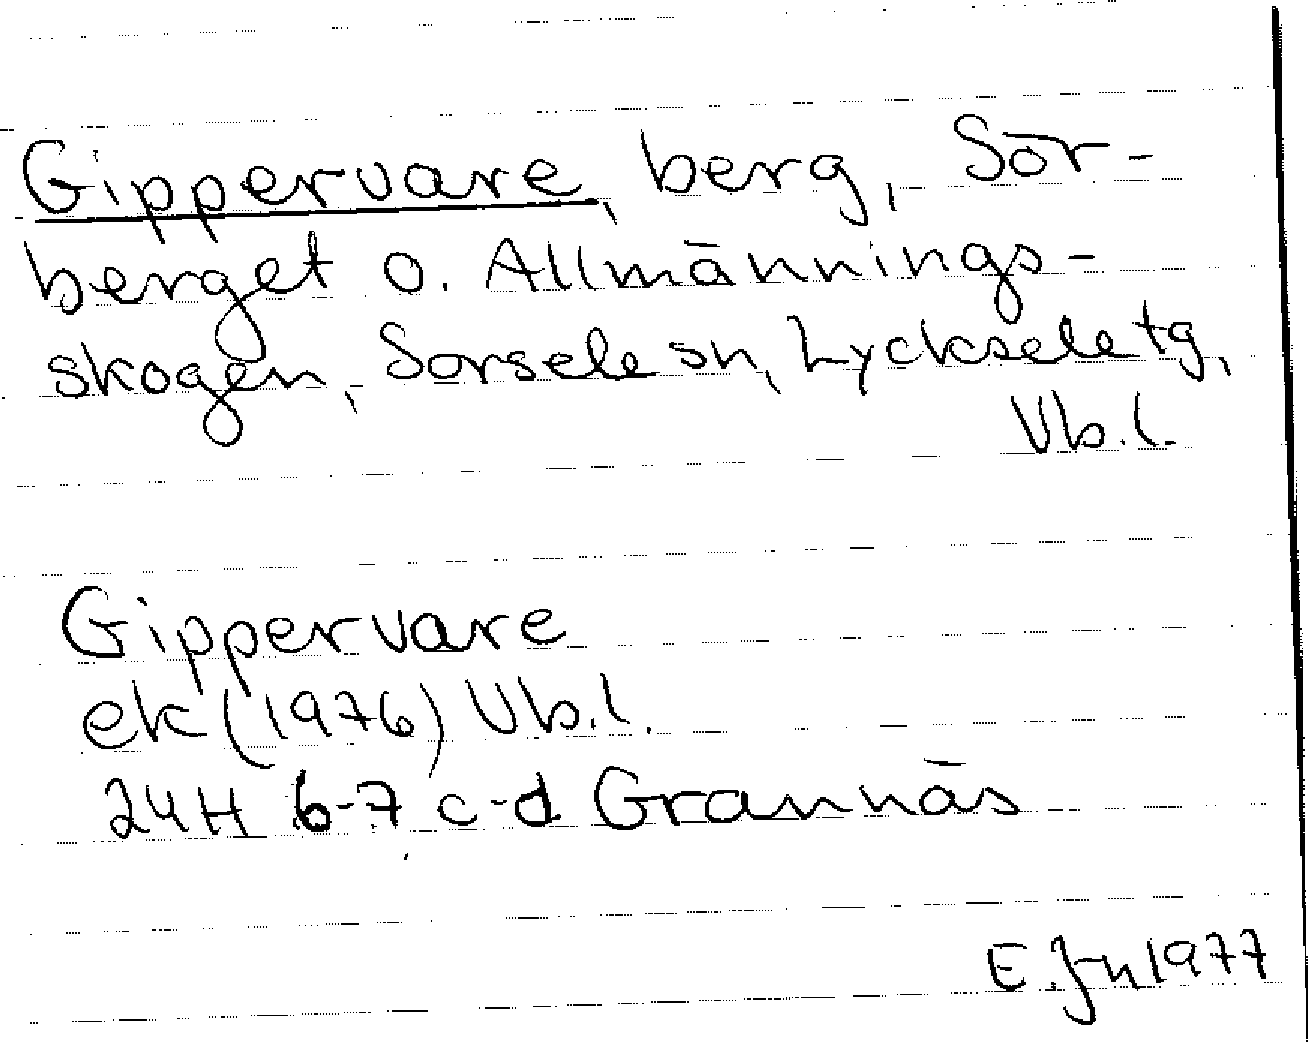 Gippervare, berg, Sör-
berget o. Allmännings-
skogen, Sorsele sn, Lycksele tg,
Vb.l.
Gippervare
ek (1976) Vb.l.
24H 6-7 c-d Grannäs
E. Jn 1977